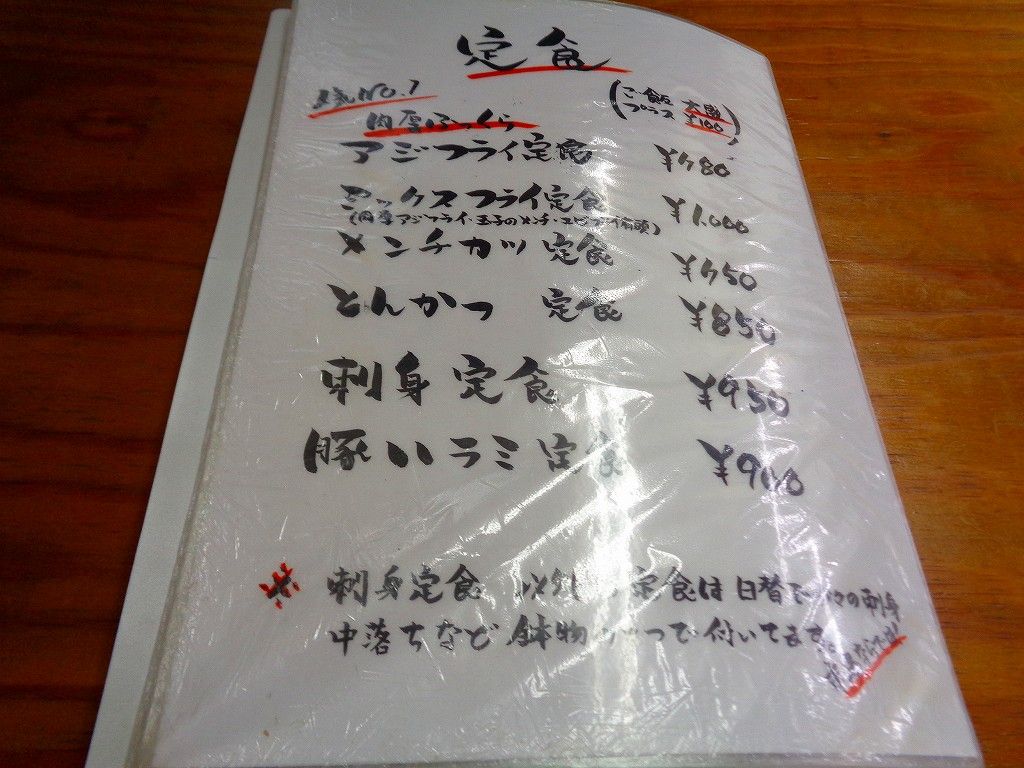 定食
人気NO.1
(ご飯 大盛
プラス ¥100)
肉厚ふっくら
アジフライ定食 ¥780
ミックスフライ定食 ¥1,000
(肉厚アジフライ・玉子のメンチ・エビフライ有頭)
メンチカツ定食 ¥750
とんかつ 定食 ¥850
刺身定食 ¥950
豚ハラミ定食 ¥900
※ 刺身定食 以外の定食は日替で の刺身
中落ちなど 鉢物が一つで付いてます。